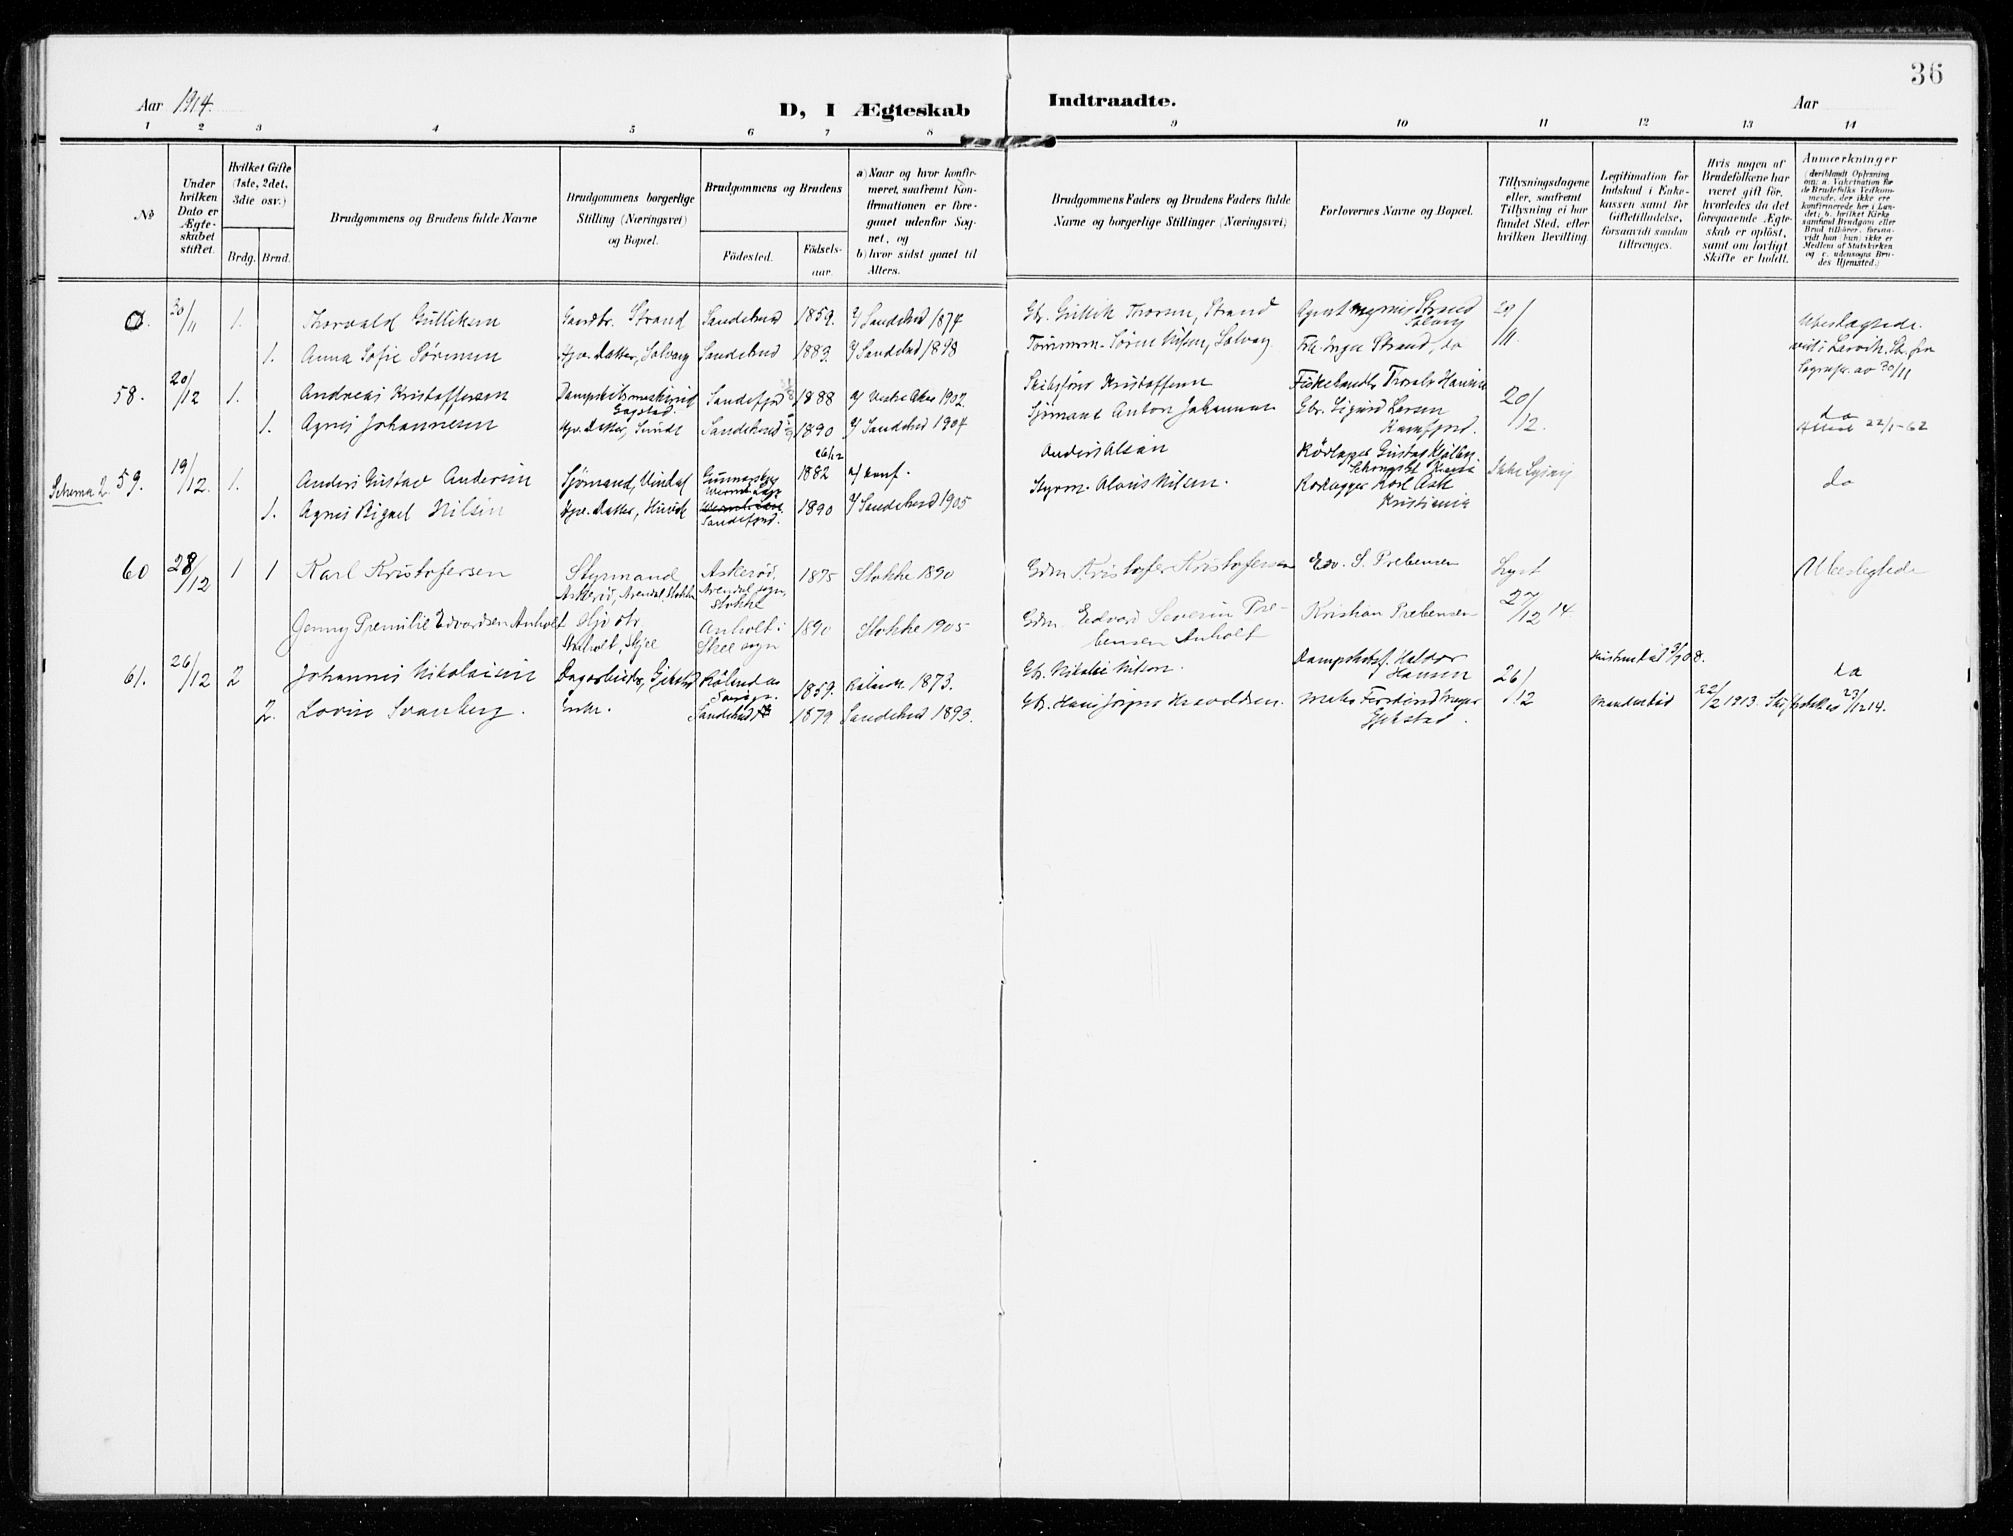 36
Aar 1914.
D, I Ægteskab
Indtraadte.
Aar
1 2 3 4 5 6 7 8 9 10 11 12 13 14
No
Under hvilken Dato er Ægteskabet stiftet.
Hvilket Gifte (1ste, 2det, 3die osv.)
Brdg. Brud.
Brudgommens og Brudens fulde Navne
Brudgommens borgerlige Stilling (Næringsvei) og Bopæl.
Brudgommens og Brudens
Fødested.
Fødselsaar.
a) Naar og hvor konfirmeret, saafremt Konfirmationen er foregaaet udenfor Sognet, og
b) hvor sidst gaaet til Alters.
Brudgommens Faders og Brudens Faders fulde Navne og borgerlige Stillinger (Næringsvei)
Forlovernes Navne og Bopæl.
Tillysningsdagene eller, saafremt Tillysning ei har fundet Sted, efter hvilken Bevilling.
Legitimation for Indskud i Enkekassen samt for Giftetilladelse, forsaavidt saadan tiltrænges.
Hvis nogen af Brudefolkene har været gift før, hvorledes da det foregaaende Ægteskab er opløst, samt om lovligt Skifte er holdt.
Anmærkninger
(deriblandt Oplysning om: a. Vakcination for de Brudefolks Vedkommende, der ikke ere konfirmerede her i Landet; b. hvilket Kirkesamfund Brudgom eller Brud tilhører, forsaavidt han (hun) ikke er Medlem af Statskirken og c. udensogns Brudes Hjemsted.)
30/11 1. Thorvald Gulliksen Gaardbr. Strand Sandeherd 1859. Sandeherd 1874 Gbr. Gullik Thorsen, Strand Agent Strand Solvang 29/11 Ubeslægtede.
1. Anna Sofie Sørensen Datter, Solvang Sandeherd 1883. Sandeherd 1898 Tømmerm. Søren Nilsen, Solvang Frk. Inga Strand, do
58. 20/12 1. Andreas Kristoffersen Sandefjord 1888 Vestre Aker 1902. Kristoffersen Fiskehandler Thorvald Hansen 20/12.
1. Agnes Johannesen Datter, Sandeherd 1890 Sandeherd 1904 Sjømand Anton Johannesen Gbr. Sigurd Larsen Kamfjord. do 22/1-62
Schema 2. 59. 19/12. 1. Anders Gustav Andersen Sjømand, 26/12 1882 konf. Anders Olsen Rørlægger Gustav do
1. Agnes Nilsen Datter, Sandefjord. 1890 Sandeherd 1905 Styrm. Nilsen. Rørlægger Karl Ask Kristiania
60 28/12 1 1 Karl Kristofersen Styrmand Askerød, Arendal, Stokke Askerød, Arendal sogn, Stokke 1875 Stokke 1890 Gdm. Kristofer Kristofersen Edv. S. Prebensen Lyst 27/12 14. Ubeslegtede
Jenny Premilie Edvardsen Anholt Anholt, Skjee Anholt i Skee sogn 1890 Stokke 1905 Gdm. Edvard Severin Prebensen Anholt Kristian Prebensen
61. 26/12 2 Johannes Nikolaisen Dagarbeider, Gjekstad 1859. 1873. Gbr. Nikolai Nilsen. Dampskibsf. Halvor Hansen 26/12 Hustru død 1908. do
2. Lovise Svanberg. Enke. Sandeherd 1879 Sandeherd 1893. Gbr. Hans Jørgen Haraldsen. Ferdinand Gjekstad. Manden død 22/2 1913. Skifte 23/12 14.